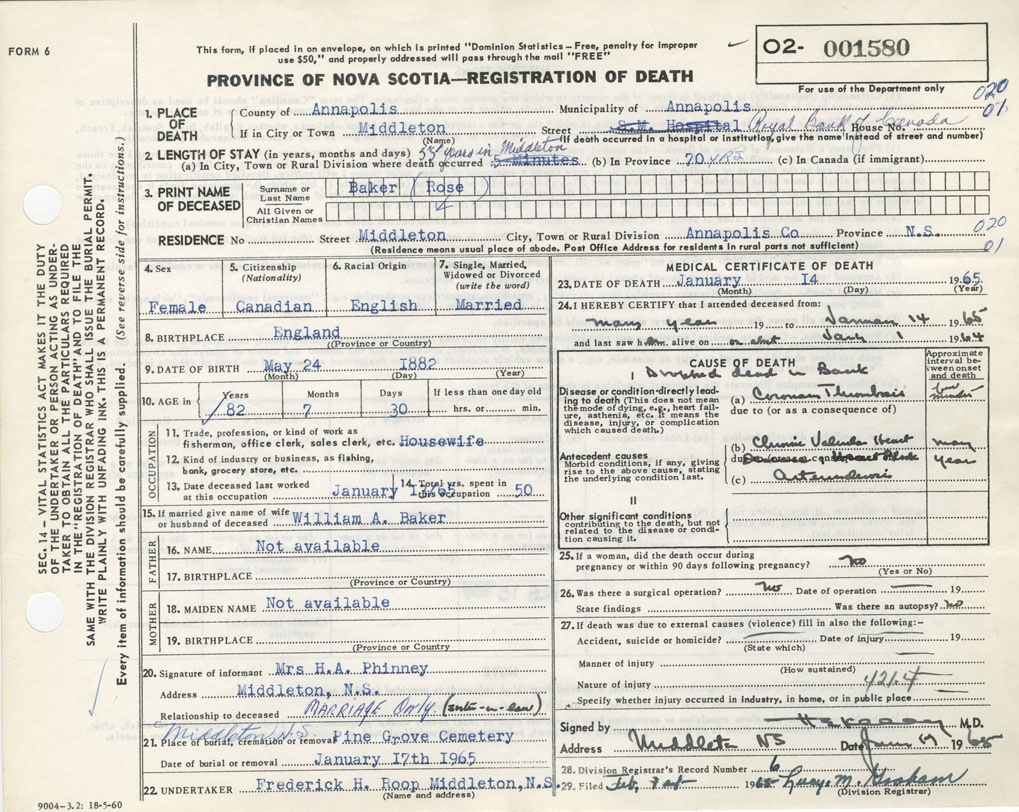 FORM 6
This form, if placed in an envelope, on which is printed "Dominion Statistics - Free, penalty for improper
use $50," and properly addressed will pass through the mail "FREE"
O2- 001580
PROVINCE OF NOVA SCOTIA—REGISTRATION OF DEATH
For use of the Department only
020
01
1. PLACE OF DEATH
County of Annapolis Municipality of Annapolis
If in City or Town Middleton Street S.M. Hospital Royal Bank of Canada House No.
(Name) (If death occurred in a hospital or institution, give the name instead of street and number)
2. LENGTH OF STAY (in years, months and days) 53 years in Middleton
(a) In City, Town or Rural Division where death occurred 5 minutes (b) In Province 70 YRS (c) In Canada (if immigrant)
3. PRINT NAME OF DECEASED
Surname or Last Name Baker (Rose)
All Given or Christian Names
RESIDENCE No Street Middleton City, Town or Rural Division Annapolis Co Province N.S. 020
01
(Residence means usual place of abode. Post Office Address for residents in rural parts not sufficient)
4. Sex 5. Citizenship (Nationality) 6. Racial Origin 7. Single, Married, Widowed or Divorced (write the word)
Female Canadian English Married
8. BIRTHPLACE England
(Province or Country)
9. DATE OF BIRTH May 24 1882
(Month) (Day) (Year)
10. AGE in Years Months Days If less than one day old
82 7 30 hrs. or min.
OCCUPATION
11. Trade, profession, or kind of work as
fisherman, office clerk, sales clerk, etc. Housewife
12. Kind of industry or business, as fishing,
bank, grocery store, etc.
13. Date deceased last worked
at this occupation January 1965 14. Total yrs. spent in this occupation 50
15. If married give name of wife
or husband of deceased William A. Baker
FATHER
16. NAME Not available
17. BIRTHPLACE
(Province or Country)
MOTHER
18. MAIDEN NAME Not available
19. BIRTHPLACE
(Province or Country)
20. Signature of informant Mrs H.A. Phinney
Address Middleton, N.S.
Relationship to deceased MARRIAGE ONLY (sister-in-law)
Middleton N.S.
21. Place of burial, cremation or removal Pine Grove Cemetery
Date of burial or removal January 17th 1965
22. UNDERTAKER Frederick H. Roop Middleton, N.S.
(Name and address)
MEDICAL CERTIFICATE OF DEATH
23. DATE OF DEATH January 14 1965
(Month) (Day) (Year)
24. I HEREBY CERTIFY that I attended deceased from:
many years 19 to January 14 1965
and last saw h alive on or about Jan 1 1964
CAUSE OF DEATH
Approximate interval between onset and death
I dropped dead in Bank
Disease or condition-directly leading to death (This does not mean the mode of dying, e.g., heart failure, asthenia, etc. It means the disease, injury, or complication which caused death.)
(a) Coronary Thrombosis few minutes
due to (or as a consequence of)
Antecedent causes
Morbid conditions, if any, giving rise to the above cause, stating the underlying condition last.
(b) Chronic Valvular Heart many
Disease Heart Block years
(c) Arteriosclerosis
II
Other significant conditions
contributing to the death, but not related to the disease or condition causing it.
25. If a woman, did the death occur during
pregnancy or within 90 days following pregnancy? no
(Yes or No)
26. Was there a surgical operation? no Date of operation 19
State findings Was there an autopsy? no
27. If death was due to external causes (violence) fill in also the following:-
Accident, suicide or homicide? Date of injury 19
(State which)
Manner of injury
(How sustained)
Nature of injury 4214
Specify whether injury occurred in industry, in home, or in public place.
Signed by M.D.
Address Middleton NS Date Jan 17 1965
28. Division Registrar's Record Number 6
29. Filed Feb. 1965 M. Graham
(Division Registrar)
SEC. 14 – VITAL STATISTICS ACT MAKES IT THE DUTY
OF THE UNDERTAKER OR PERSON ACTING AS UNDER-
TAKER TO OBTAIN ALL THE PARTICULARS REQUIRED
IN THE "REGISTRATION OF DEATH" AND TO FILE THE
SAME WITH THE DIVISION REGISTRAR WHO SHALL ISSUE THE BURIAL PERMIT.
WRITE PLAINLY WITH UNFADING INK. THIS IS A PERMANENT RECORD.
Every item of information should be carefully supplied. (See reverse side for instructions.)
9004-3.2: 18-5-60